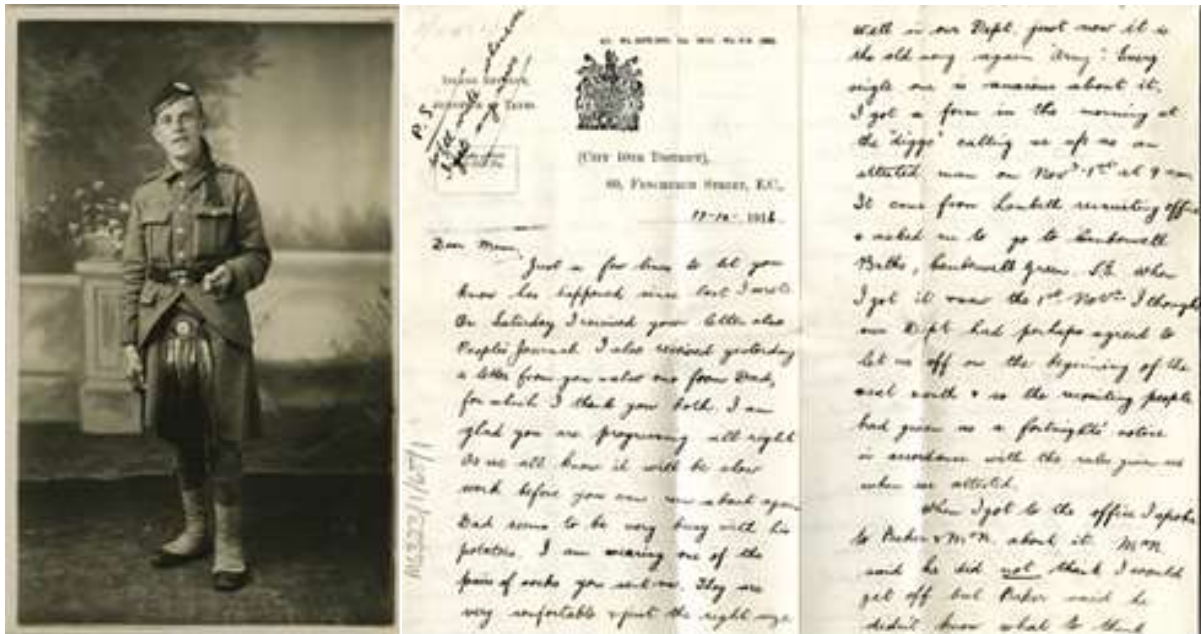 P.S.
Inland Revenue,
Surveyor of Taxes.
(City 10th District),
60, Fenchurch Street, E.C.,
17-10- 1916.
MS332/1/65/1
Dear Mum,
Just a few lines to let you
know has happened since last I wrote
On Saturday I received your letter also
Peoples Journal. I also received yesterday
a letter from you & also one from Dad,
for which I thank you both. I am
glad you are progressing all right
As we all know it will be slow
work before you can run about again
Dad seems to be very busy with his
potatoes. I am wearing one of the
pairs of socks you sent me. They are
very comfortable & just the right size
in our Dept. just now it is
the old song again 'Army'! Every
single one is anxious about it.
I got a form in the morning at
the 'diggs' calling me up as an
attested man on Novr 1st at 9 am
It came from Lambeth recruiting office
& asked me to go to Camberwell
Baths, Camberwell Green. S.E. When
I got it & saw the 1st Novr. I thought
our Dept had perhaps agreed to
let us off on the beginning of the
next month & so the recruiting people
had given us a fortnight's notice
in accordance with the rules given us
when we attested.
When I got to the office I spoke
to Parker & McN. about it. McN
said he did not think I would
get off but Parker said he
didn't know what to think